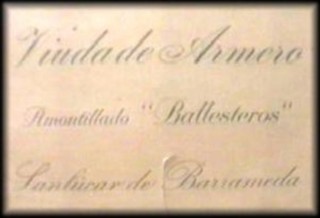 Viuda de Armero
Amontillado "Ballesteros"
Sanlúcar de Barrameda